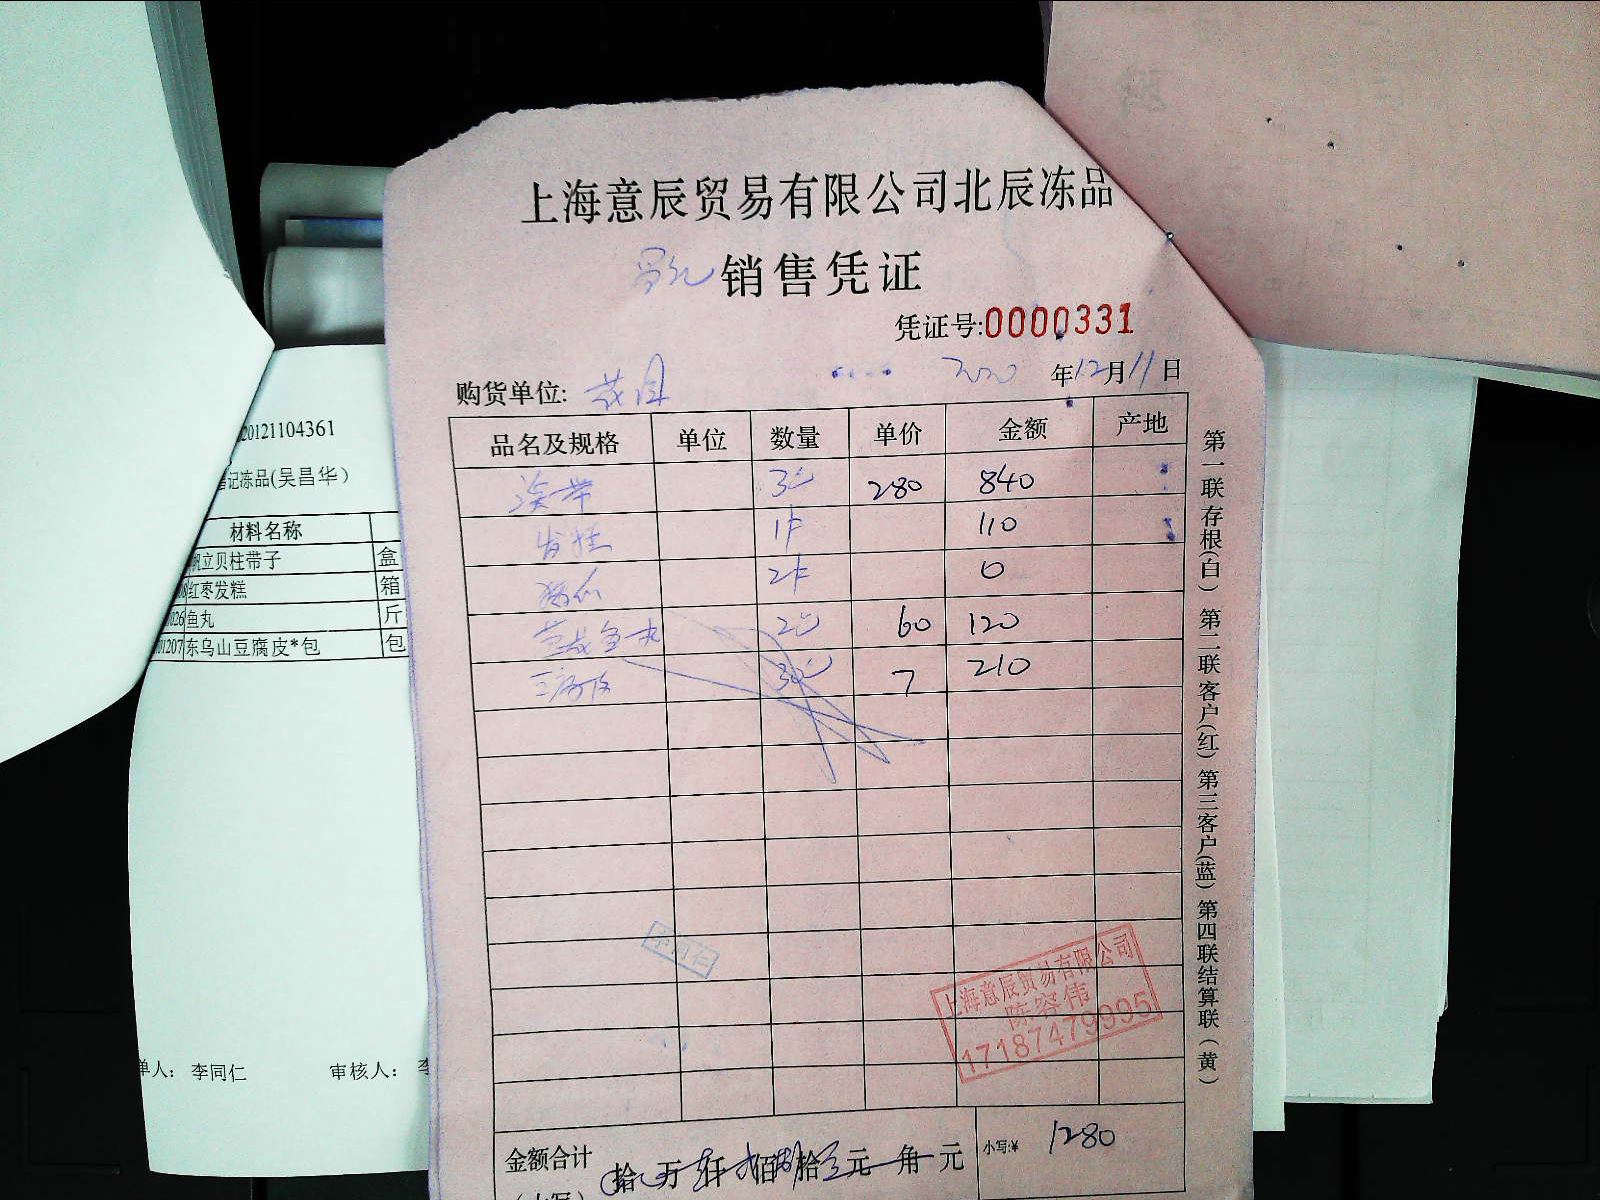 上海意辰贸易有限公司北辰冻品
销售凭证
凭证号:0000331
购货单位: 2020年12月11日
品名及规格 单位 数量 单价 金额 产地
3 280 840
1件 110
2件 0
2 60 120
豆腐皮 30 7 210
金额合计 拾 万 仟 佰 拾 元 角 元 小写:¥ 1280
上海意辰贸易有限公司
陈容伟
17187479995
李同仁
第一联存根(白) 第二联客户(红) 第三客户(蓝) 第四联结算联(黄)
20121104361
记冻品(吴昌华)
材料名称
帆立贝柱带子 盒
红枣发糕 箱
026 鱼丸 斤
01207 东乌山豆腐皮*包 包
单人: 李同仁 审核人: 李